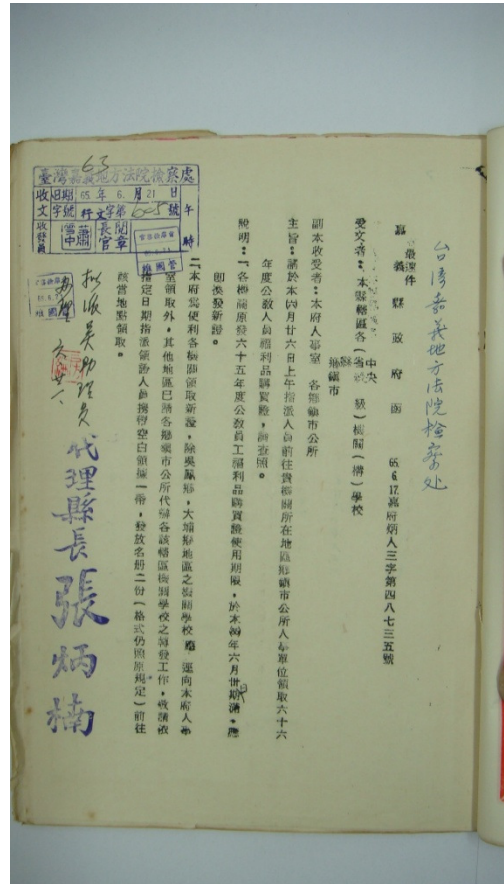 台湾嘉義地方法院檢察处
最速件
嘉義縣政府函 65.6.17.嘉府炳人三字第四八七三五號
受文者：本縣轄區各（中央 省 縣 鄉鎮市 級）機關（構）學校
副本收受者：本府人事室 各鄉鎮市公所
主旨：請於本六月廿六日上午指派人員前往貴機關所在地區鄉鎮市公所人事單位領取六十六
年度公教人員福利品購買證，請查照。
說明：一、各機關原發六十五年度公教員工福利品購買證使用期限，於本年六月卅日期滿，應
即換發新證。
二、本府為便利各機關領取新證，除吳鳳鄉，大埔鄉地區之機關學校 逕向本府人事
室領取外，其他地區已請各鄉鎮市公所代辦各該轄區機關學校之轉發工作，敬請依
指定日期指派領證人員攜帶空白領據一份，發放名冊二份（格式仍照原規定）前往
該當地點領取。
代理縣長 張炳楠
擬派員助理員
63
臺灣嘉義地方法院檢察處
收文 日期 65年 6月 21日 午 時
字號 行文字第 605 號
收發員
長官閱章